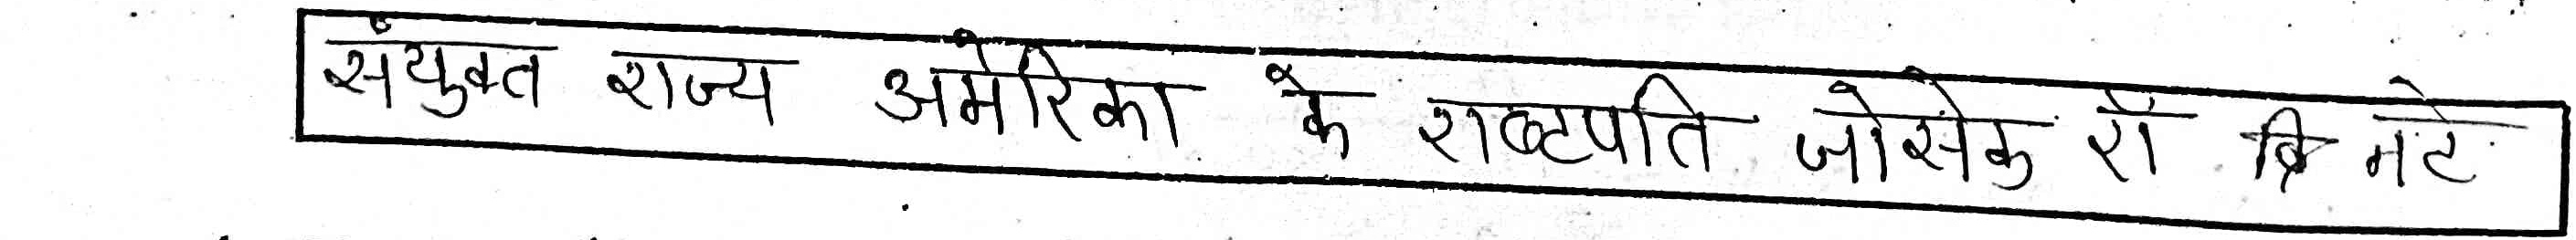 संयुक्त राज्य अमेरिका के राष्टपति जोसेक रॉ